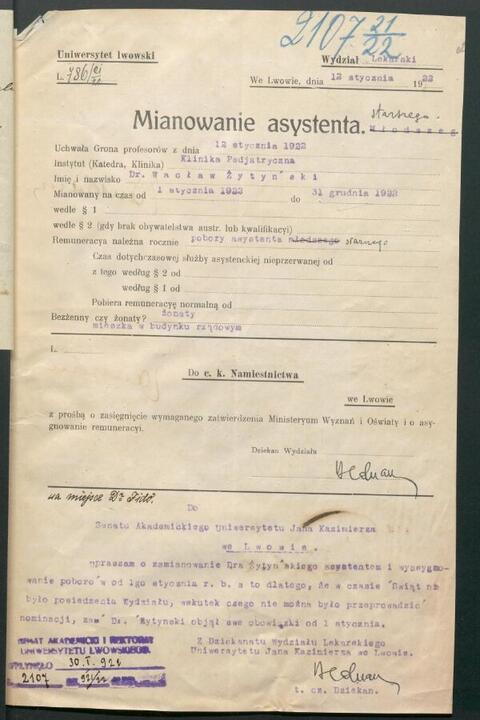 2107 21/22
Uniwersytet lwowski
Wydział Lekarski
L. 786/
We Lwowie, dnia 12 stycznia 1922
starszego.
Mianowanie asystenta. Młodszeg
Uchwała Grona profesorów z dnia 12 stycznia 1922
Instytut (Katedra, Klinika) Klinika Pedjatryczna
Imię i nazwisko Dr. Wacław Żytyński
Mianowany na czas od 1 stycznia 1922 do 31 grudnia 1922
wedle § 1
wedle § 2 (gdy brak obywatelstwa austr. lub kwalifikacyi)
Remuneracya należna rocznie pobory asystenta młodszego starszego
Czas dotychczasowej służby asystenckiej nieprzerwanej od
z tego według § 2 od
według § 1 od
Pobiera remuneracyę normalną od
Bezżenny czy żonaty? żonaty
mieszka w budynku rządowym
L.
Do c. k. Namiestnictwa
we Lwowie
z prośbą o zasięgnięcie wymaganego zatwierdzenia Ministeryum Wyznań i Oświaty i o asy-
gnowanie remuneracyi.
Dziekan Wydziału
na miejsce Dr Fido.
Do
Senatu Akademickiego Uniwersytetu Jana Kazimierza
we Lwowie.
upraszam o zamianowanie Dra Żytyńskiego asystentem i wyasygno-
wanie poborów od 1go stycznia r. b. a to dlatego, że w czasie Świąt nie
było posiedzenia Wydziału, wskutek czego nie można było przeprowadzić
nominacji, zaś Dr. Żytyński objął swe obowiązki od 1 stycznia.
Z Dziekanatu Wydziału Lekarskiego
Uniwersytetu Jana Kazimierza we Lwowie.
SENAT AKADEMICKI I REKTORAT
UNIWERSYTETU LWOWSKIEGO.
WPŁYNĘŁO 30.I.921
2107
t. cz. Dziekan.